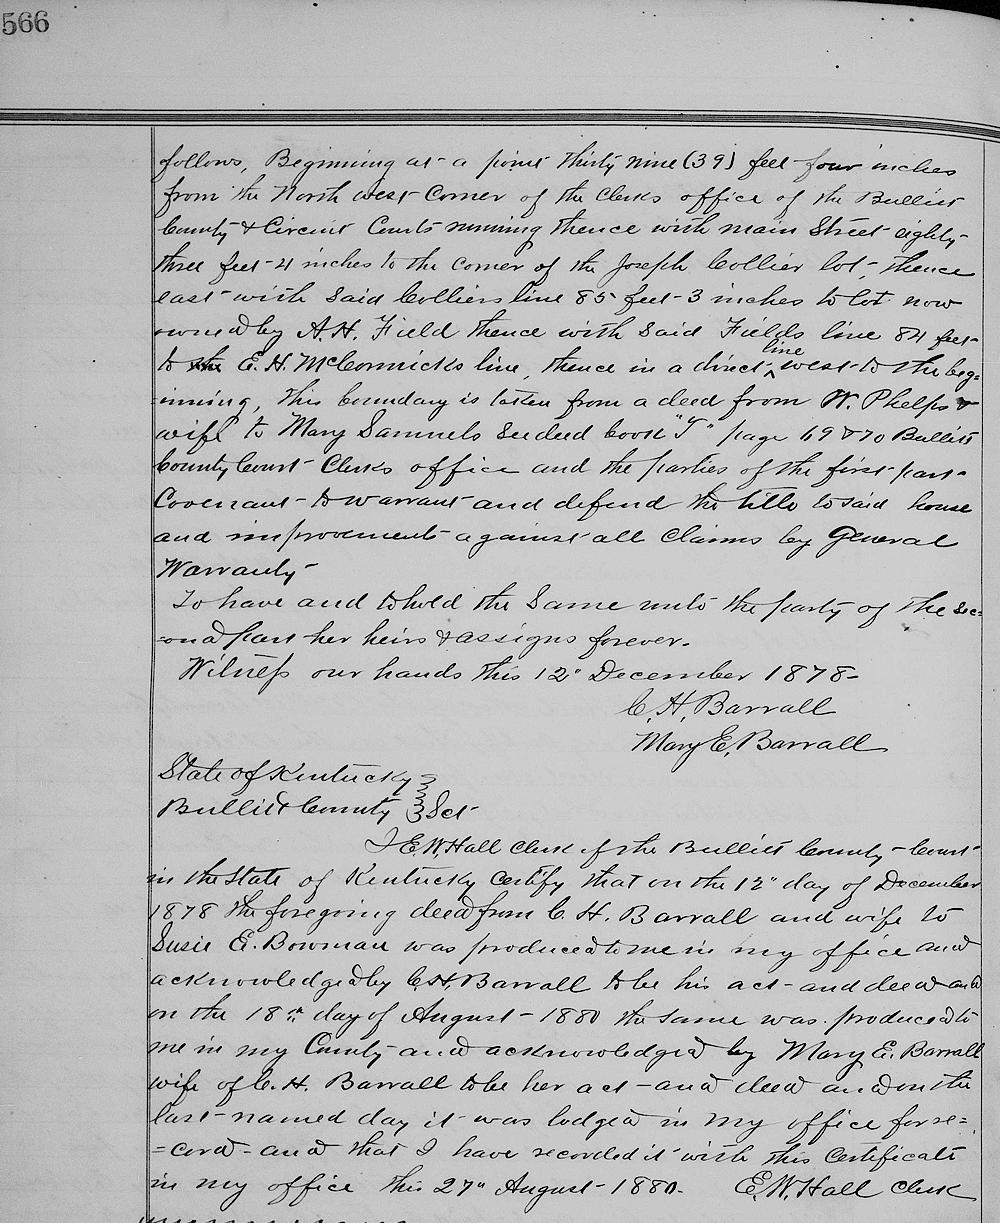 566
follows, Beginning at a point thirty nine (39) feet four inches
from the North west Corner of the Clerks office of the Bullitt
County & Circuit Courts running thence with main Street eighty
three feet 4 inches to the corner of the Joseph Collier lot, thence
east with said Colliers line 85 feet 3 inches to lot now
owned by A. H. Field thence with said Fields line 84 feet
to the E. H. McCormicks line, thence in a direct line west to the beg=
=inning, this boundary is taken from a deed from W. Phelps &
wife to Mary Samuels see deed book "T" page 69 & 70 Bullitt
County Court Clerks office and the parties of the first part
Covenant to warrant and defend the title to said house
and improvements against all Claims by General
Warranty
To have and to hold the same unto the party of the sec=
=ond part her heirs & assigns forever.
Witness our hands this 12" December 1878
C. H. Barrall
Mary E. Barrall
State of Kentucky
Bullitt County } Sct
I E. W. Hall Clerk of the Bullitt County Court
in the State of Kentucky Certify that on the 12" day of December
1878 the foregoing deed from C. H. Barrall and wife to
Susie E. Bowman was produced to me in my office and
acknowledged by C. H. Barrall to be his act and deed and
on the 18th day of August 1880 the same was produced to
me in my County and acknowledged by Mary E. Barrall
wife of C. H. Barrall to be her act and deed and on the
last named day it was lodged in my office for re=
=cord and that I have recorded it with this Certificate
in my office this 27" August 1880. E. W. Hall Clerk